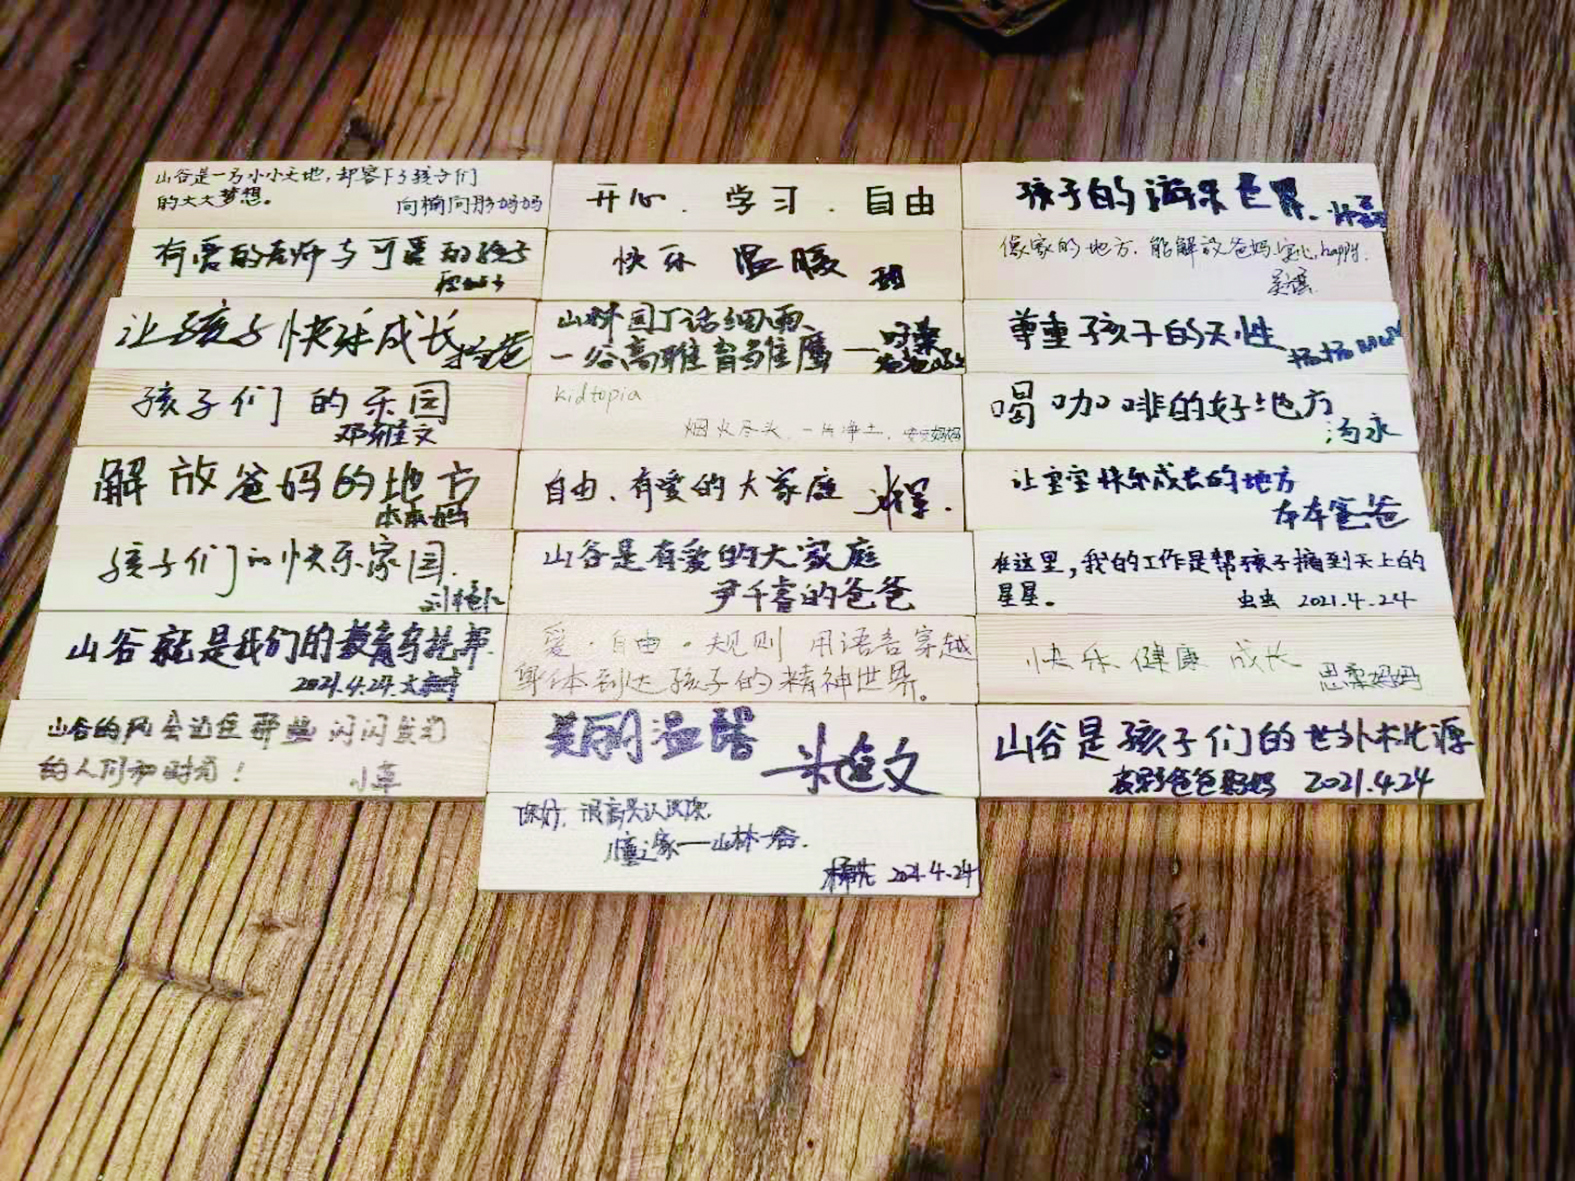 山谷是一方小小天地,却容下了孩子们
的大大梦想。
向楠向彤妈妈
有爱的老师与可爱的孩子
让孩子快乐成长
孩子们的乐园
邓维文
解放爸妈的地方
本本妈
孩子们的快乐家园.
山谷就是我们的教育乌托邦.
2021.4.24.
山谷的风会记住那些闪闪发光
的人们和时光!
小草
开心.学习.自由
快乐 温暖
山林园丁话细雨、
一谷高雅育雏鹰——
kidtopia
烟火尽头,一片净土.
自由、有爱的大家庭
山谷是有爱的大家庭
尹千喜的爸爸
爱·自由·规则 用语言穿越
身体到达孩子的精神世界。
美丽温馨
你好,很高兴认识你.
山林一谷.
2021.4.24
孩子的游乐世界.
像家的地方.能解放爸妈.happy.
尊重孩子的天性
杨杨
喝咖啡的好地方
汤永
让宝宝快乐成长的地方
本本爸爸
在这里,我的工作是帮孩子摘到天上的
星星。
虫虫 2021.4.24
快乐 健康 成长
思柔妈妈
山谷是孩子们的世外桃源
爸爸妈妈 2021.4.24